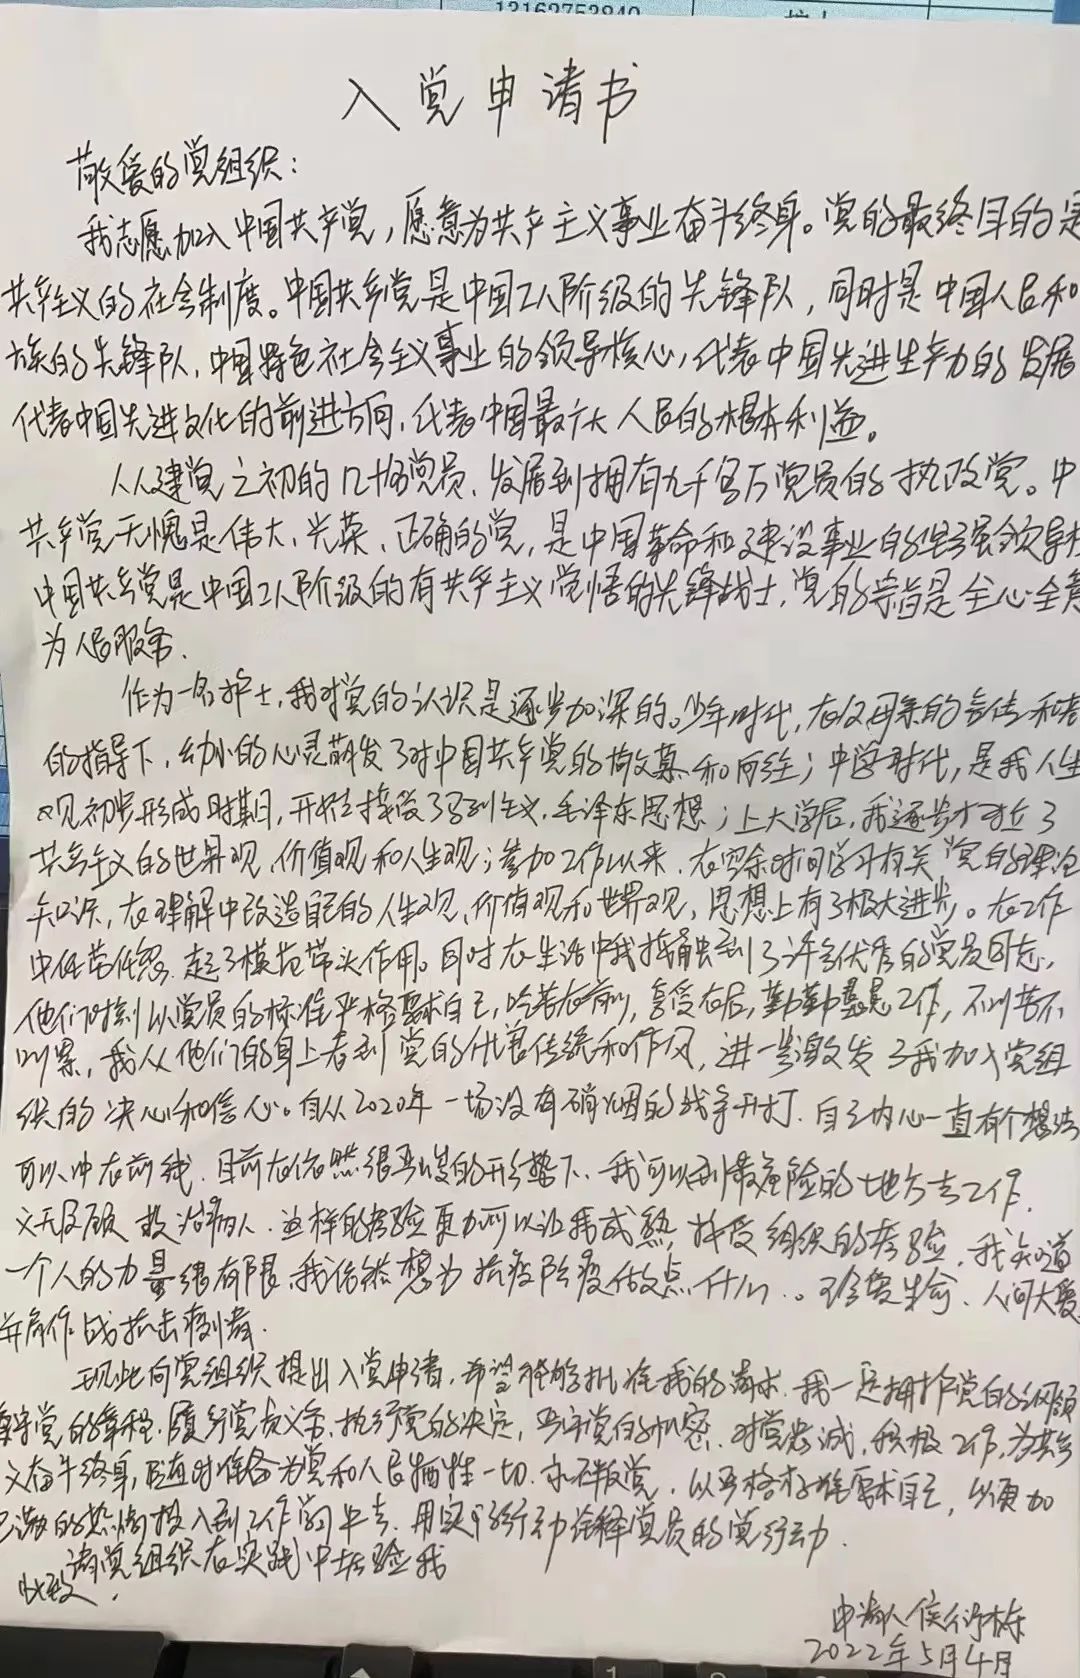 13162753840
入党申请书
敬爱的党组织：
我志愿加入中国共产党，愿意为共产主义事业奋斗终身。党的最终目的是
共产主义的社会制度。中国共产党是中国工人阶级的先锋队，同时是中国人民和
族的先锋队，中国特色社会主义事业的领导核心，代表中国先进生产力的发展
代表中国先进文化的前进方向，代表中国最广大人民的根本利益。
从建党之初的几十名党员，发展到拥有九千多万党员的执政党。中
共产党无愧是伟大、光荣、正确的党，是中国革命和建设事业的坚强领导核
中国共产党是中国工人阶级的有共产主义觉悟的先锋战士，党的宗旨是全心全意
为人民服务.
作为一名护士，我对党的认识是逐步加深的。少年时代，在父母亲的言传和老
的指导下，幼小的心灵萌发了对中国共产党的敬慕和向往；中学时代，是我人生
观初步形成时期，开始接受了马列主义、毛泽东思想；上大学后，我逐步树立了
共产主义的世界观、价值观和人生观；参加工作以来，在空余时间学习有关党的理论
知识，在理解中改造自己的人生观、价值观和世界观，思想上有了极大进步。在工作
中任劳任怨，起了模范带头作用。同时在生活中我接触到了许多优秀的党员同志，
他们时刻以党员的标准严格要求自己，吃苦在前，享受在后，勤勤恳恳工作，不叫苦不
叫累，我从他们的身上看到党的优良传统和作风，进一步激发了我加入党组
织的决心和信心。自从2020年一场没有硝烟的战争开打，自己内心一直有个想法
可以冲在前线，目前在依然很严峻的形势下，我可以到最危险的地方去工作，
义无反顾救治病人，这样的考验更加可以让我成熟，接受组织的考验，我知道
一个人的力量很有限，我依然想为抗疫防疫做点什么。珍爱生命、人间大爱
并肩作战抗击病毒.
现此向党组织提出入党申请，希望能够批准我的请求，我一定拥护党的纲领
遵守党的章程，履行党员义务，执行党的决定，严守党的机密，对党忠诚，积极工作，为共产
义奋斗终身，随时准备为党和人民牺牲一切，永不叛党，以严格标准要求自己，以更加
饱满的热情投入到工作学习中去，用实际行动诠释党员的党行动.
请党组织在实践中考验我
此致，
申请人 侯衍栋
2022年5月4日